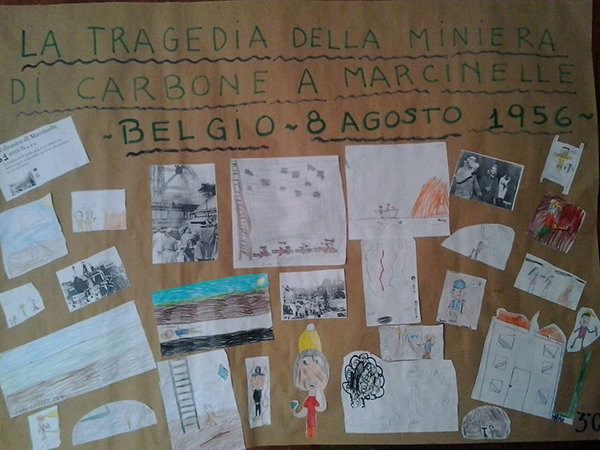 LA TRAGEDIA DELLA MINIERA
DI CARBONE A MARCINELLE
~BELGIO~8 AGOSTO 1956~
di Marcinelle,
3°C